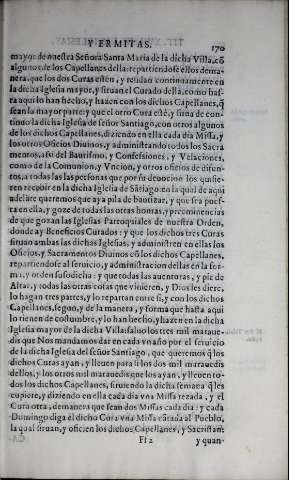 Y ERMITAS.
170
mayor de nuestra Señora Santa Maria de la dicha Villa, cõ
algunos de los Capellanes della: repartiendose ellos dema-
nera, que los dos Curas estẽn, y residan continuamente en
la dicha Iglesia mayor, y siruan el Curado della, como has-
ta aqui lo han hecho, y hazen con los dichos Capellanes, q̃
sean la mayor parte: y que el otro Cura estè, y sirua de con-
tinuo la dicha Iglesia de señor Santiago, con otros algunos
de los dichos Capellanes, diziendo en ella cada dia Missa, y
los otros Oficios Diuinos, y administrando todos los Sacra
mentos, assi del Bautismo, y Confessiones, y Velaciones,
como de la Comunion, y Vncion, y otros oficios de difun-
tos, a todas las personas que por su deuocion los quisie-
ren recebir en la dicha Iglesia de Sãtiago: en la qual de aqui
adelãte queremos que aya pila de bautizar, y que sea pues-
ta en ella, y goze de todas las otras honras, y preeminencias
de que gozan las Iglesias Parroquiales de nuestra Orden,
donde ay Beneficios Curados: y q̃ los dichos tres Curas
siruan ambas las dichas Iglesias, y administren en ellas los
Oficios, y Sacramentos Diuinos cõ los dichos Capellanes,
repartiendose al seruicio, y administracion dellas en la for-
ma, y orden susodicha: y que todas las auenturas, y pie de
Altar, y todas las otras cosas que vinieren, y Dios les diere,
lo hagan tres partes, y lo repartan entre si, y con los dichos
Capellanes, segun, y de la manera, y forma que hasta aqui
lo tienen de costumbre, y lo han hecho, y hazen en la dicha
Iglesia mayor de la dicha Villa: saluo los tres mil maraue-
dis que Nos mandamos dar en cada vn año por el seruicio
de la dicha Iglesia del señor Santiago, que queremos q̃ los
dichos Curas ayan, y lleuen para si los dos mil marauedis
dellos, y los otros mil marauedis que los ayan, y lleuen to-
dos los dichos Capellanes, siruiendo la dicha semana q̃ les
cupiere, y diziendo en ella cada dia vna Missa rezada, y el
Cura otra, demanera que sean dos Missas cada dia: y cada
Domingo diga el dicho Cura vna Missa cãtada al Pueblo,
la qual siruan, y oficien los dichos Capellanes, y Sacristan:
Ff 2
y quan-